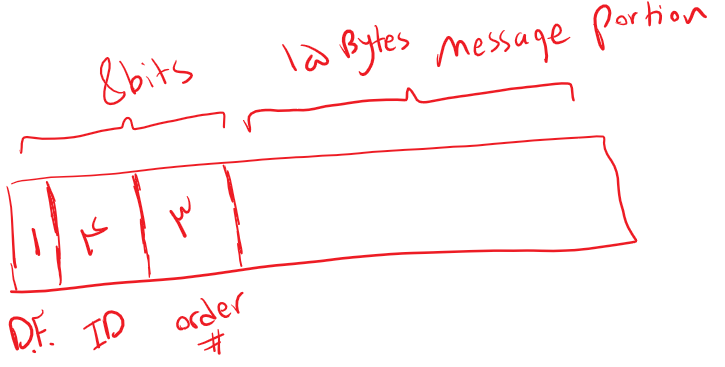 8bits ۱۵ Bytes message portion
۱ ۴ ۳
D.F. ID order
#